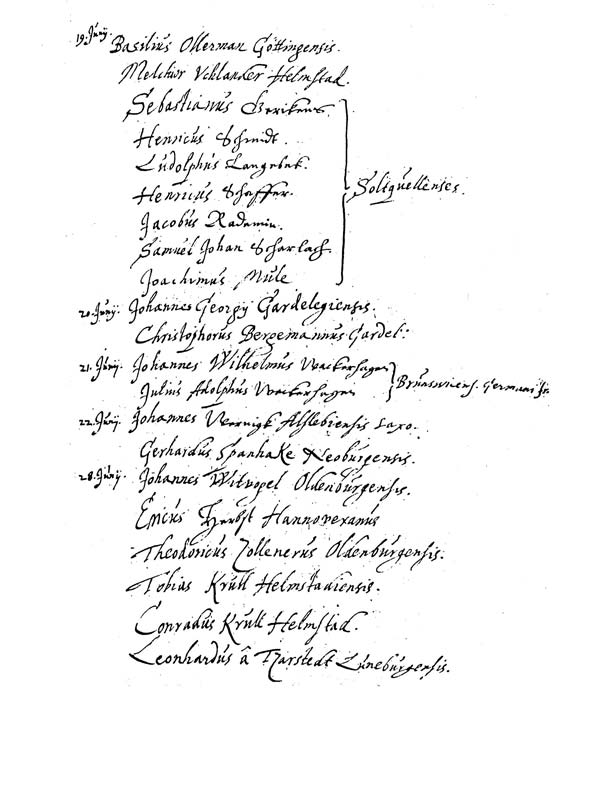 19. Junij. Basilius Ollerman Göttingensis.
Melchior Vchlander Helmstad.
Sebastianus Gerikens.
Henricus Schmidt.
Ludolphus Langebek.
Henricus Schaffer.
Soltquellenses.
Jacobus Rademin.
Samuel Johan Scharlach.
Joachimus Mule
20. Junij. Johannes Georgij Gardelegiensis.
Christophorus Bergemannus Gardel:
21. Junij. Johannes Wilhelmus Wackerhagen
Julius Adolphus Wackerhagen Brunsvicens. Germani fr.
22. Junij. Johannes Wernigk Alslebiensis Saxo.
Gerhardus Spanhake Neoburgensis.
28. Junij. Johannes Witvogel Oldenburgensis.
Ericus Herbst Hannoveranus
Theodoricus Zollenerus Oldenburgensis.
Tobias Krull Helmstadiensis.
Conradus Krull Helmstad.
Leonhardus â Harstedt Luneburgensis.